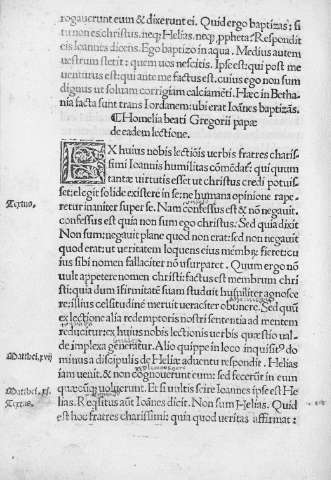 rogauerunt eum & dixerunt ei. Quid ergo baptizas: si
tu non es christus: neq; Helias. neq; ppheta: Respondit
eis Ioannes dicens. Ego baptizo in aqua. Medius autem
uestrum stetit: quem uos nescitis. Ipse est: qui post me
uenturus est: qui ante me factus est. cuius ego non sum
dignus ut soluam corrigiam calciamēti. Hæc in Betha-
nia facta sunt trans Iordanem: ubi erat Ioānes baptizās.
¶ Homelia beati Gregorii papæ
de eadem lectione.
EX huius nobis lectiōis uerbis fratres charis-
simi Ioannis humilitas cōmēdat: qui quum
tantæ uirtutis esset ut christus credi potuis-
set: elegit solide existere in se: ne humana opinione rape-
Textus. retur inaniter super se. Nam confessus est & nō negauit.
confessus est quia non sum ego christus: Sed quia dixit
Non sum: negauit plane quod non erat: sed non negauit
quod erat: ut ueritatem loquens eius membrū fieret: cu-
ius sibi nomen fallaciter nō usurparet. Quum ergo nō
uult appetere nomen christi: factus est membrum chri
sti: quia dum ifirmitatē suam studuit humiliter agnosce
re: illius celsitudinē meruit ueraciter obtinere. Sed quū
ex lectione alia redemptoris nostri sententia ad mentem
reducitur: ex huius nobis lectionis uerbis quæstio ual-
de implexa generatur. Alio quippe in loco inquisit? do
Mathei. xvij minus a discipulis de Heliæ aduentu respondit. Helias
iam uenit. & non cognouerunt eum: sed fecerūt in eum
Mathei. xj. quæcūq; uoluerunt. Et si uultis scire Ioannes ipse est He
Textus. lias. Reqsitus aūt Ioānes dicit. Non sum Helias. Quid
est hoc fratres charissimi: quia quod ueritas affirmat: